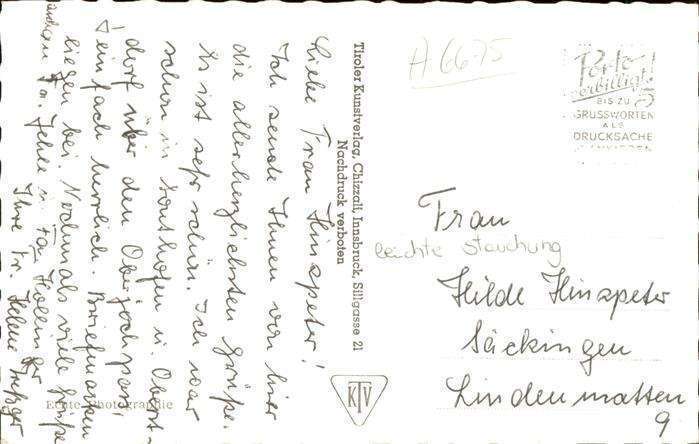 Liebe Frau Hinspeter!
Ich sende Ihnen von hier
die allerherzlichsten Grüße.
Es ist sehr schön. Ich war
schon in Sonthofen u. Oberst-
dorf über den Oberjochpass!
einfach herrlich. Briefmarken
liegen bei. Nochmals viele Grüße
Fr. Jehle u.
Ihre Fr. Helene
Tiroler Kunstverlag, Chizzali, Innsbruck, Sillgasse 21
Nachdruck verboten
KTV
Echte Photographie
A.6675
Porto
verbilligt!
BIS ZU 5
GRUSSWORTEN
ALS
DRUCKSACHE
Frau
leichte Stauchung
Hilde Hinspeter
Säckingen
Lindenmatten
9